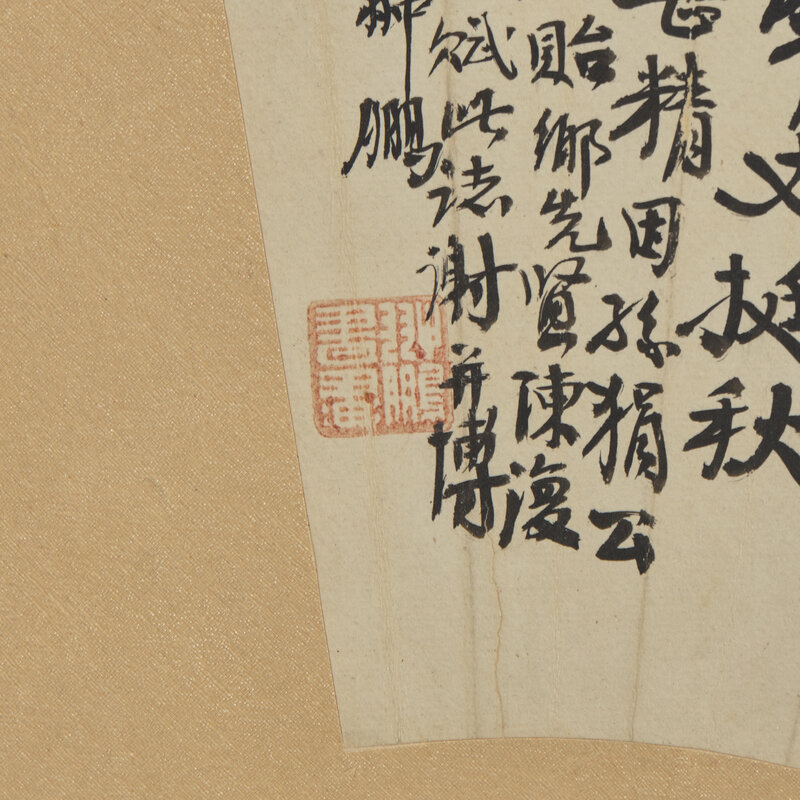 文挺秋
精因孫猖公
貽鄉先賢陳復
賦此誌謝并博
翀鵬
翀鵬書畫